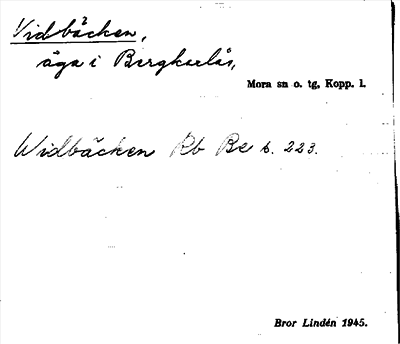 Vidbäcken,
äga i Bergkarlås,
Mora sn o. tg, Kopp. l.
Widbäcken Rb Be s. 223.
Bror Lindén 1945.